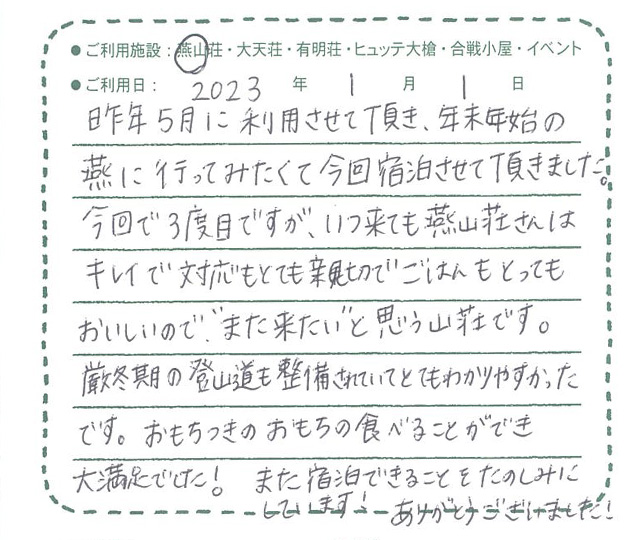 ● ご利用施設：燕山荘・大天荘・有明荘・ヒュッテ大槍・合戦小屋・イベント
● ご利用日： 2023 年 1 月 1 日
昨年5月に利用させて頂き、年末年始の
燕に行ってみたくて今回宿泊させて頂きました。
今回で3度目ですが、いつ来ても燕山荘さんは
キレイで対応もとても親切でごはんもとっても
おいしいので、"また来たい"と思う山荘です。
厳冬期の登山道も整備されていてとてもわかりやすかった
です。おもちつきのおもちの食べることができ
大満足でした！ また宿泊できることをたのしみに
しています！ ありがとうございました！